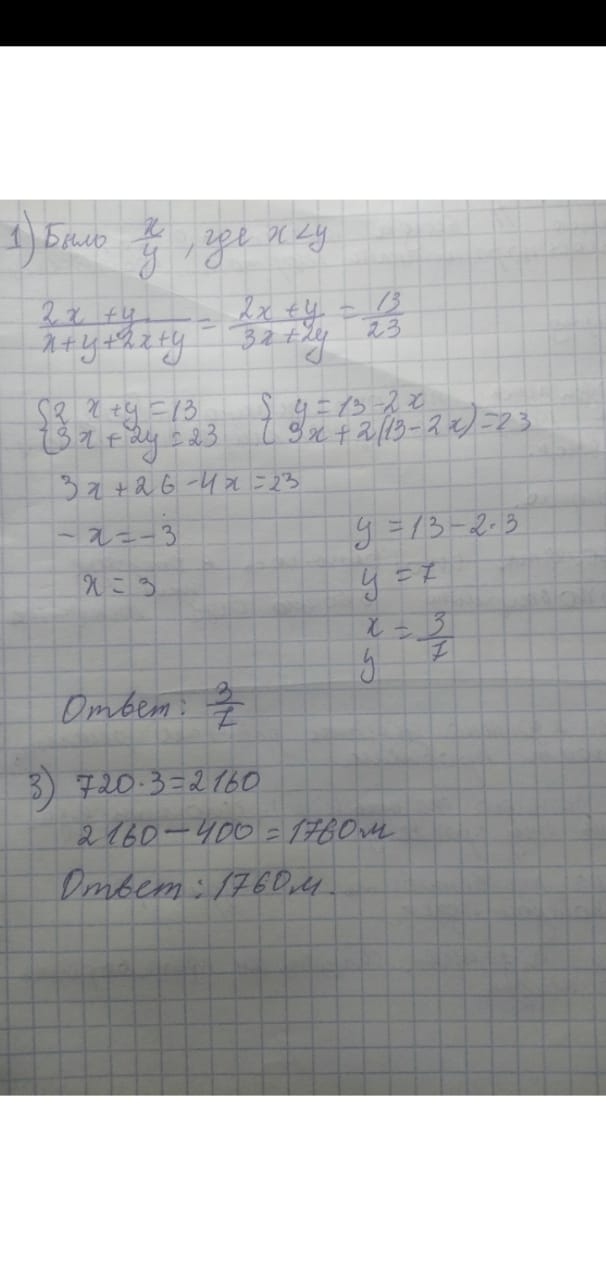 1) Было x/y, где x<y
2x+y/x+y+2x+y = 2x+y/3x+2y = 13/23
{2x+y=13 { y=13-2x
{3x+2y=23 { 3x+2(13-2x)=23
3x+26-4x=23
-x=-3 y=13-2·3
x=3 y=7
x/y = 3/7
Ответ: 3/7
3) 720·3=2160
2160-400=1760м
Ответ: 1760м.